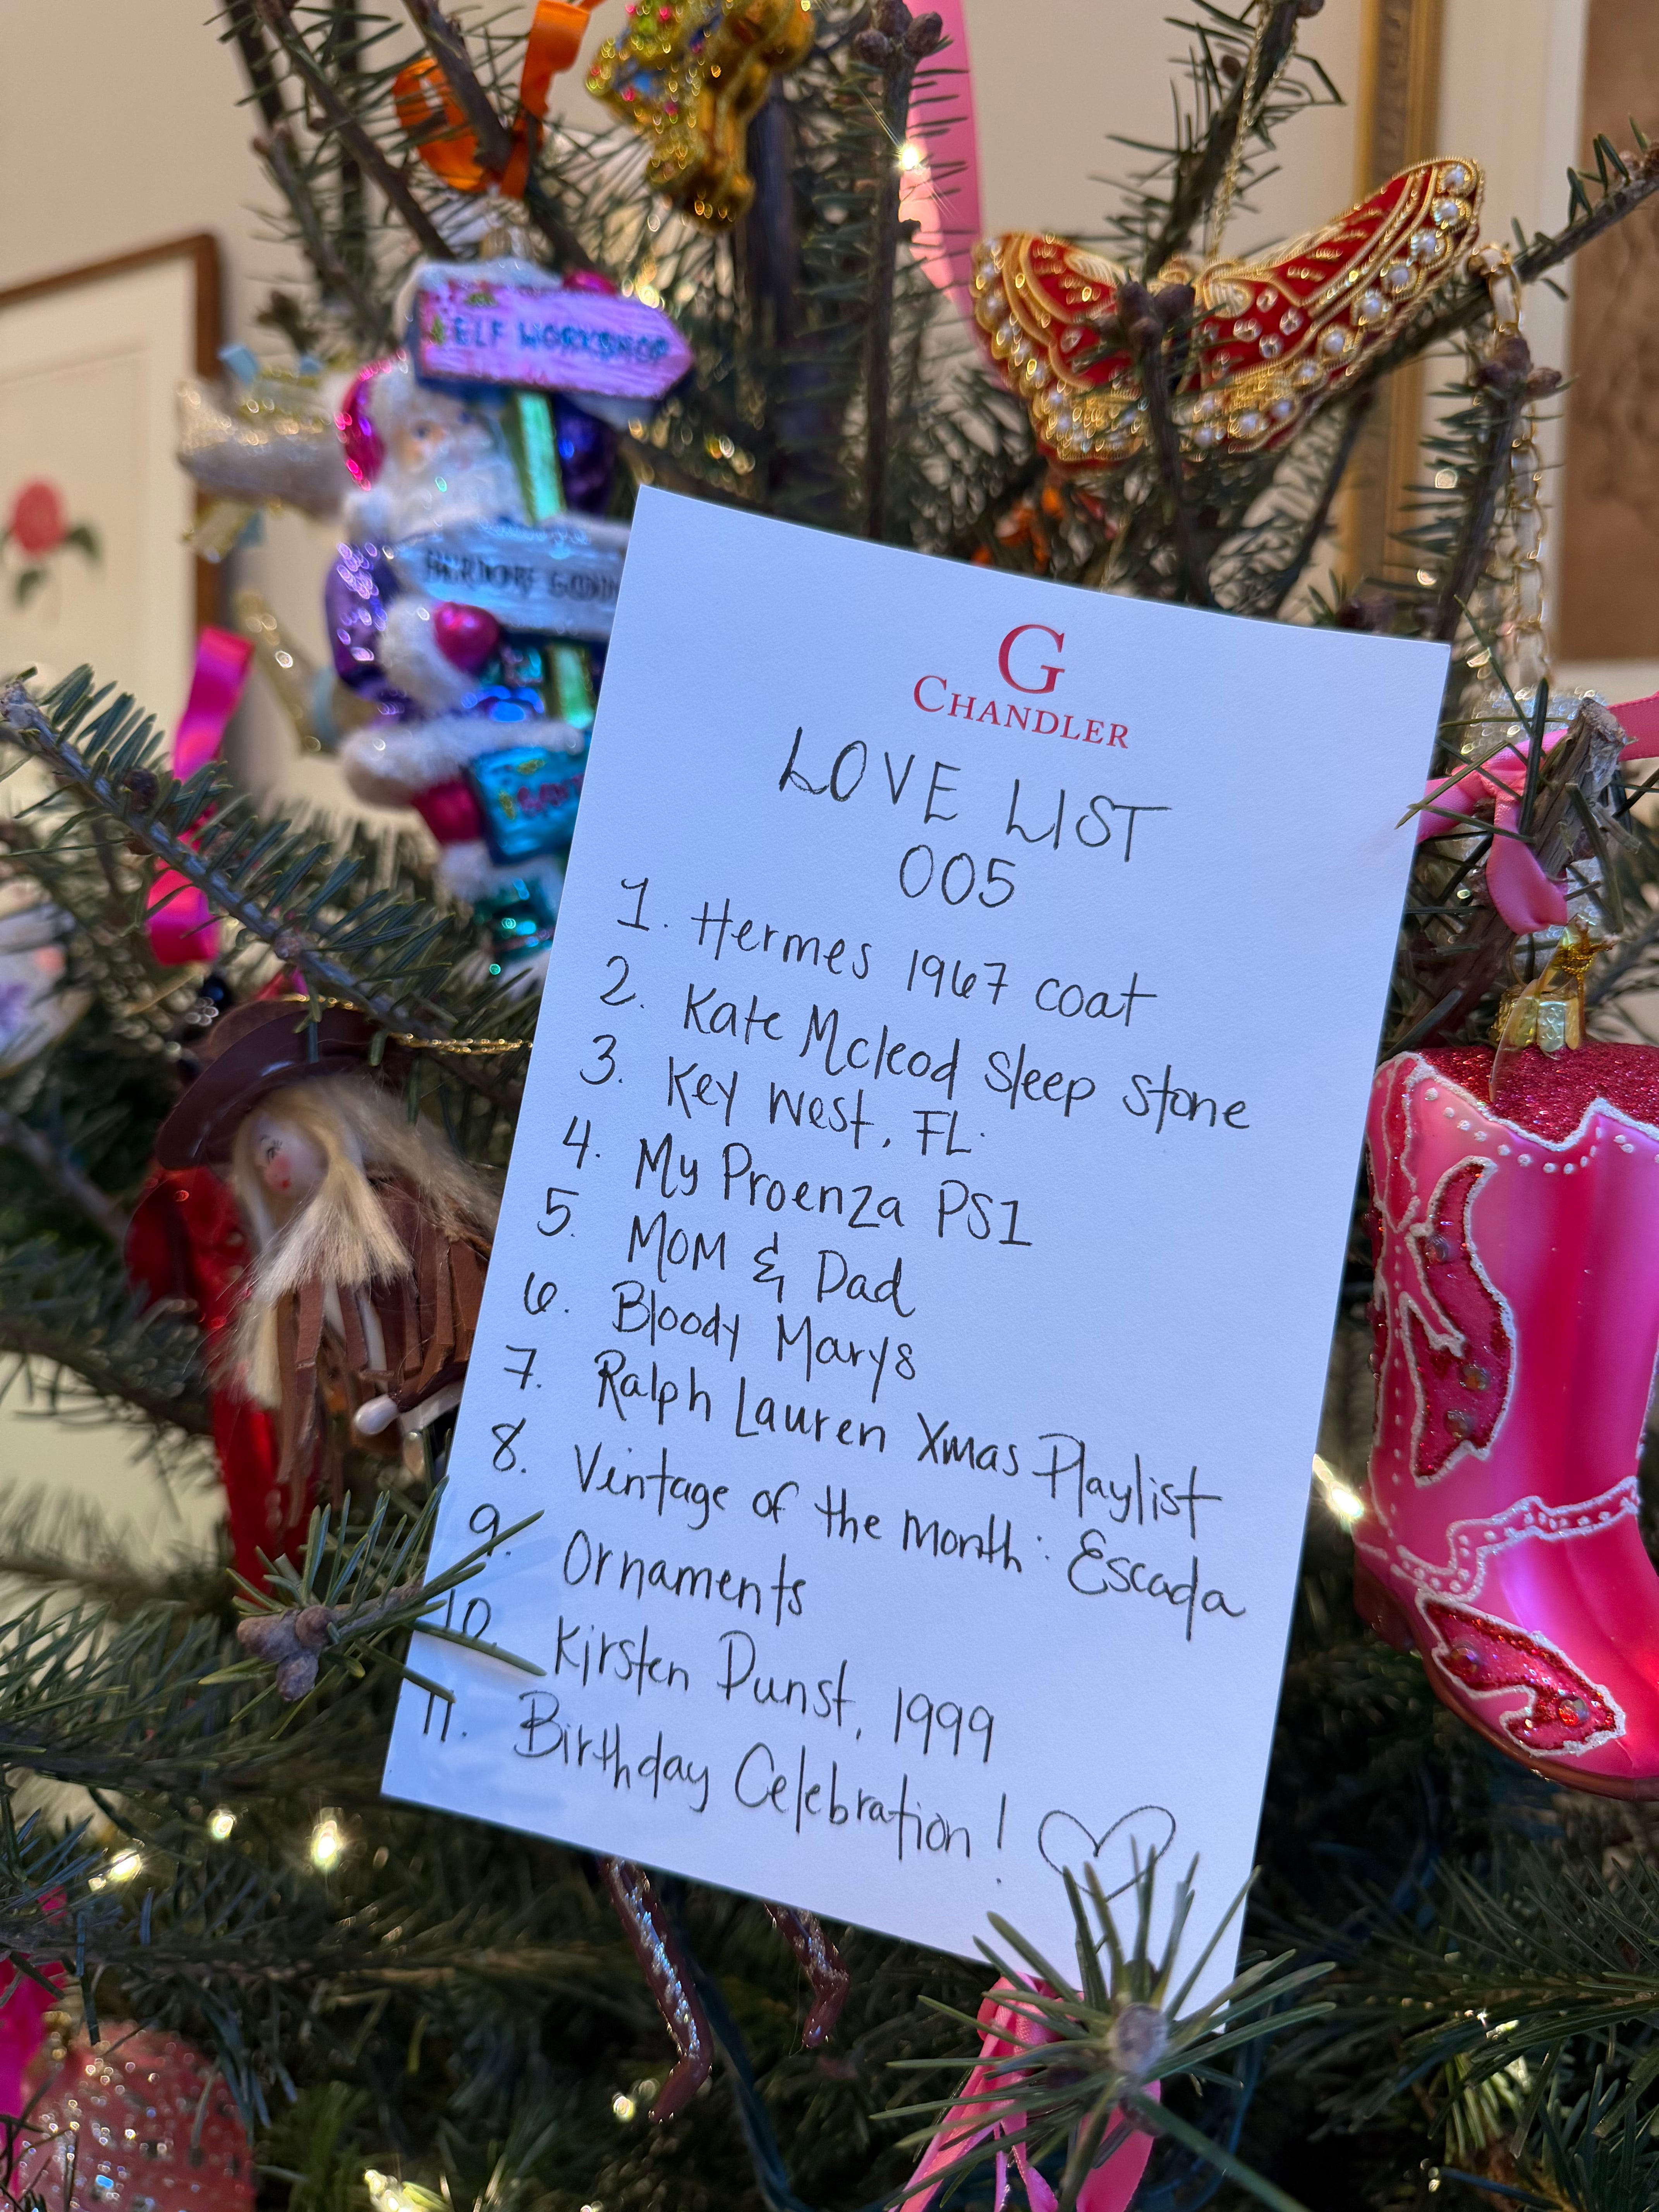 ELF WORKSHOP
G
CHANDLER
LOVE LIST
005
1. Hermes 1967 coat
2. Kate Mcleod Sleep Stone
3. Key West, FL.
4. My Proenza PS1
5. MOM & Dad
6. Bloody Marys
7. Ralph Lauren Xmas Playlist
8. Vintage of the Month: Escada
9. Ornaments
10. Kirsten Dunst, 1999
11. Birthday Celebration!